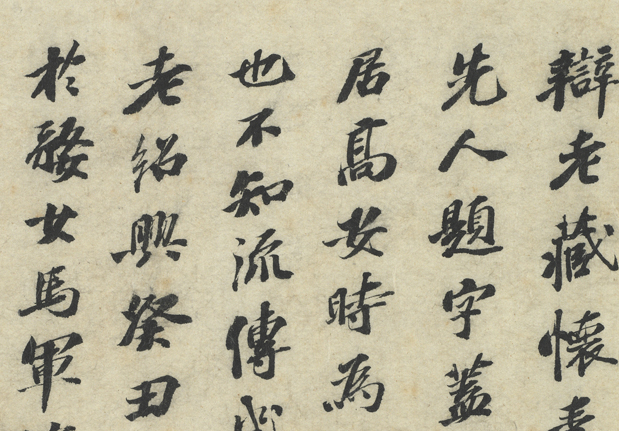 辯老藏懷素
先人題字蓋
居高安時為
也不知流傳
老紹興癸丑
於發女馬軍